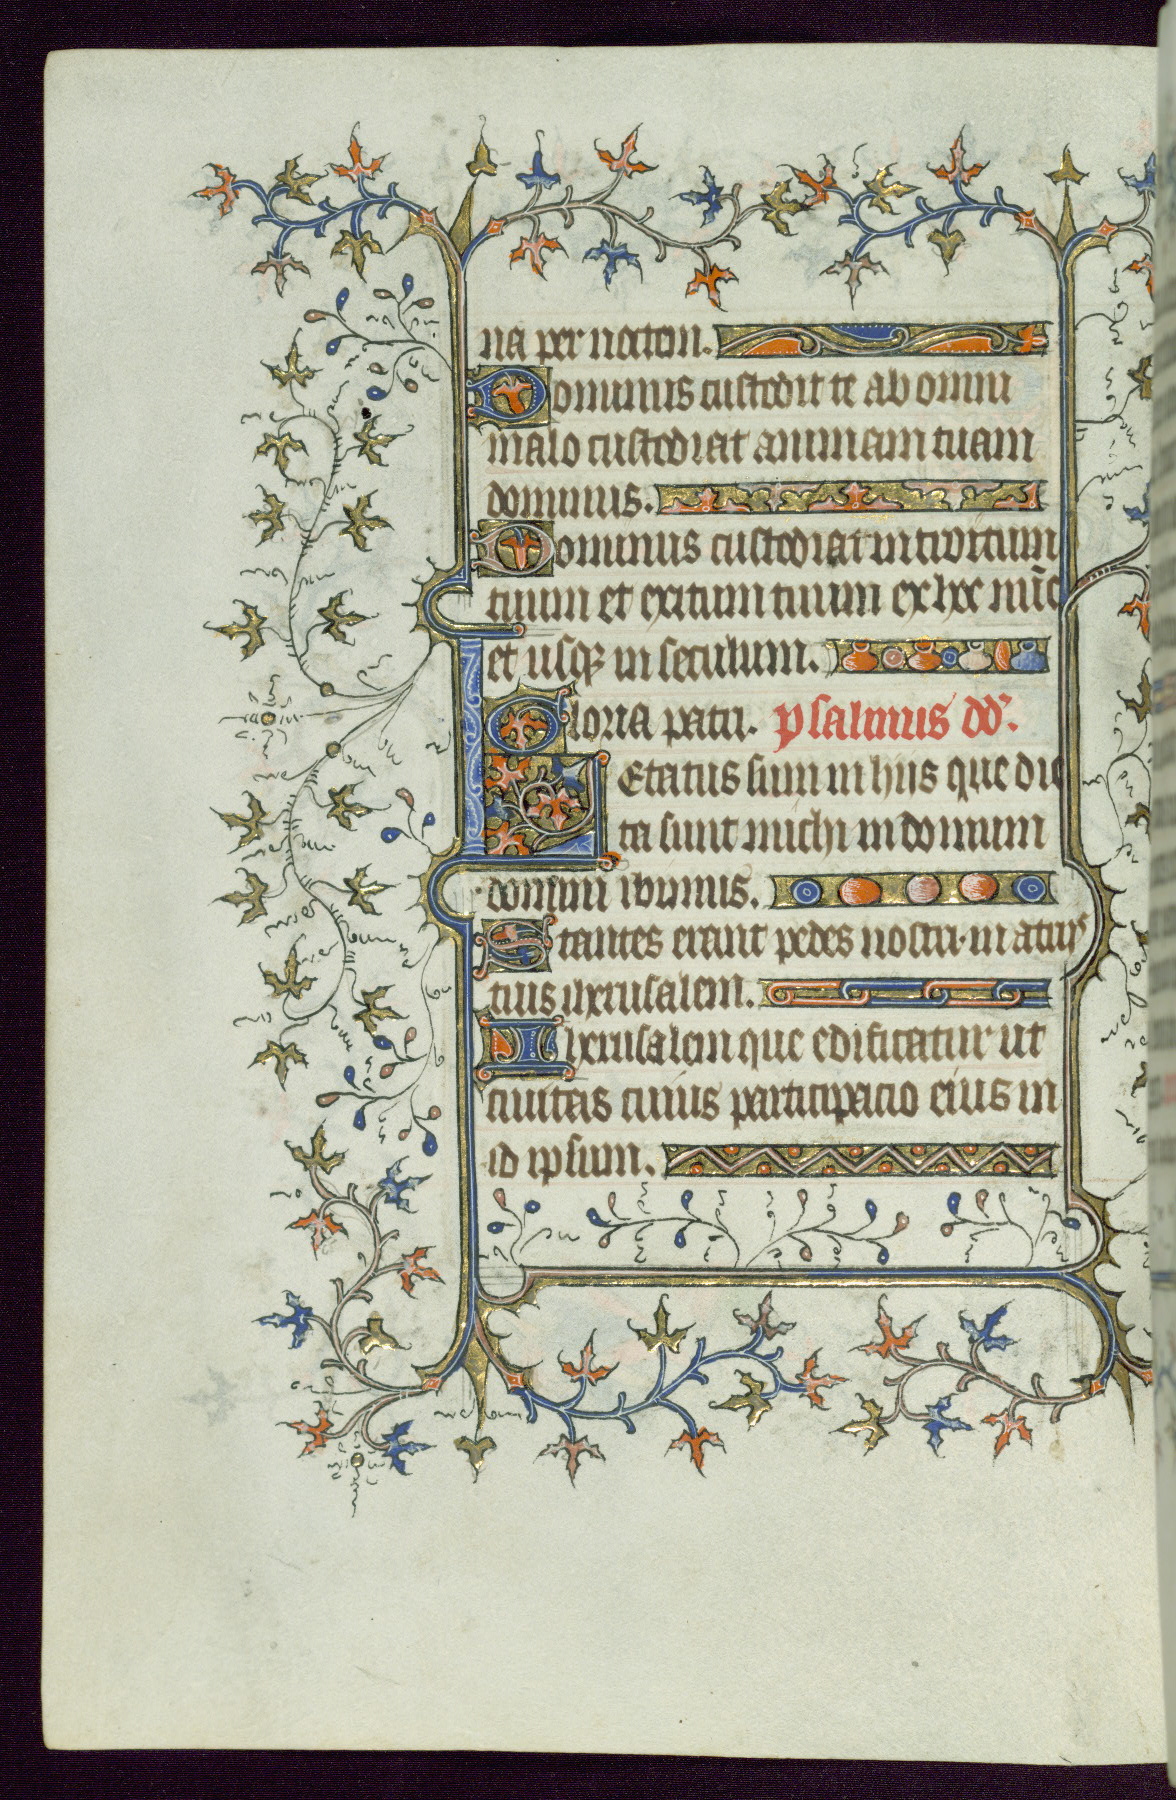 na per noctem.
Dominus custodit te ab omni
malo custodiat animam tuam
dominus.
Dominus custodiat introitum
tuum et exitum tuum ex hoc nu̅c
et usqꝫ in seculum.
Gloria patri. psalmus dd̕.
Letatus sum in hiis que dic
ta sunt michi in domum
domini ibimus.
Stantes erant pedes nostri·in atriis
tuis iherusalem.
Iherusalem que edificatur ut
civitas cuius participacio eius in
id ipsum.